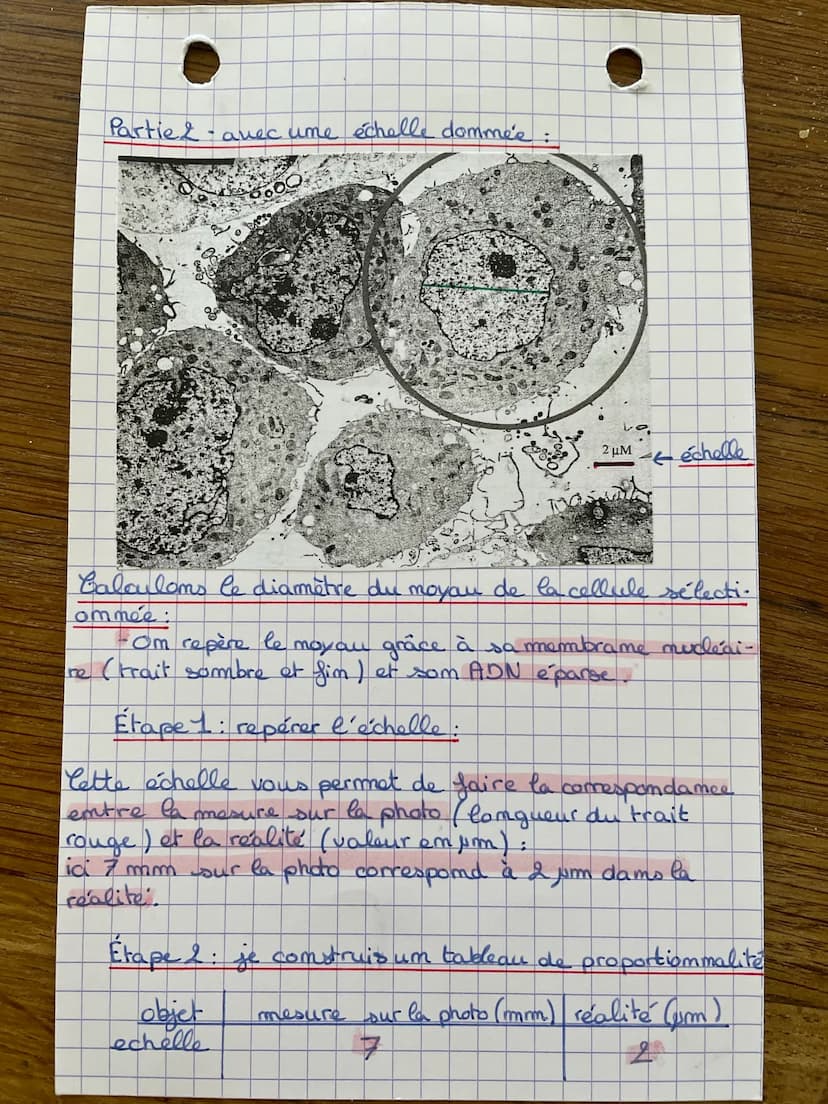 Partie 2 - avec une échelle donnée :
2 µM
← échelle
Calculons le diamètre du noyau de la cellule sélecti-
onnée :
- On repère le noyau grâce à sa membrane nucléai-
re (trait sombre et fin) et son ADN éparse.
Étape 1 : repérer l'échelle :
Cette échelle vous permet de faire la correspondance
entre la mesure sur la photo (longueur du trait
rouge) et la réalité (valeur en µm) :
ici 7 mm sur la photo correspond à 2 µm dans la
réalité.
Étape 2 : je construis un tableau de proportionnalité
objet | mesure sur la photo (mm) | réalité (µm)
echelle | 7 | 2